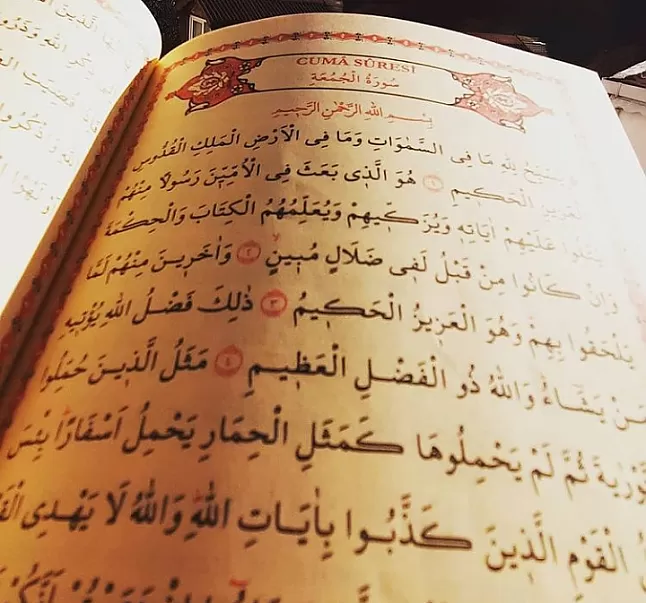 CUMÂ SÛRESİ
سُورَةُ الْجُمُعَةِ
بِسْمِ اللّٰهِ الرَّحْمٰنِ الرَّحٖيمِ
يُسَبِّحُ لِلّٰهِ مَا فِى السَّمٰوَاتِ وَمَا فِى الْاَرْضِ الْمَلِكِ الْقُدُّوسِ
الْعَزٖيزِ الْحَكٖيمِ ١ هُوَ الَّذٖى بَعَثَ فِى الْاُمِّيّٖنَ رَسُولًا مِنْهُمْ
يَتْلُوا عَلَيْهِمْ اٰيَاتِهٖ وَيُزَكّٖيهِمْ وَيُعَلِّمُهُمُ الْكِتَابَ وَالْحِكْمَةَ
وَاِنْ كَانُوا مِنْ قَبْلُ لَفٖى ضَلَالٍ مُبٖينٍ ٢ وَاٰخَرٖينَ مِنْهُمْ لَمَّا
يَلْحَقُوا بِهِمْ وَهُوَ الْعَزٖيزُ الْحَكٖيمُ ٣ ذٰلِكَ فَضْلُ اللّٰهِ يُؤْتٖيهِ
مَنْ يَشَاءُ وَاللّٰهُ ذُو الْفَضْلِ الْعَظٖيمِ ٤ مَثَلُ الَّذٖينَ حُمِّلُوا
ثُمَّ لَمْ يَحْمِلُوهَا كَمَثَلِ الْحِمَارِ يَحْمِلُ اَسْفَارًا بِئْسَ
الْقَوْمِ الَّذٖينَ كَذَّبُوا بِاٰيَاتِ اللّٰهِ وَاللّٰهُ لَا يَهْدِى